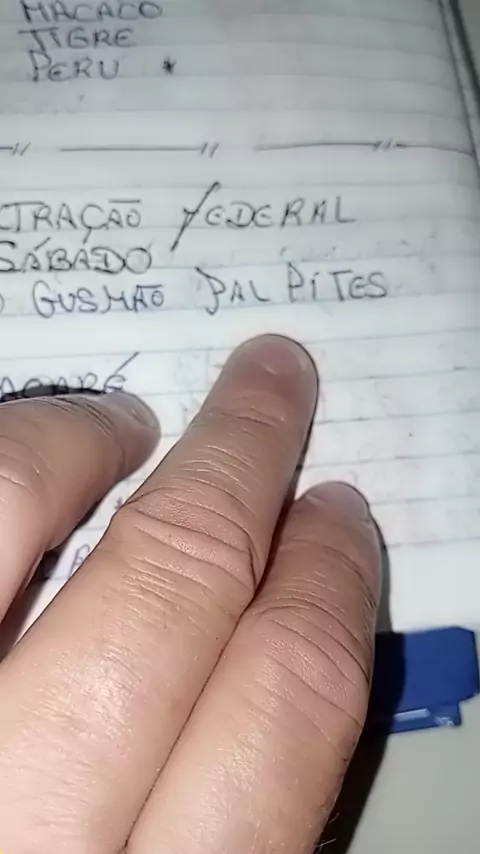 MACACO
TIGRE
PERU *
TRAÇÃO FEDERAL
SÁBADO
O GUSMÃO PALPITES
ACARÉ